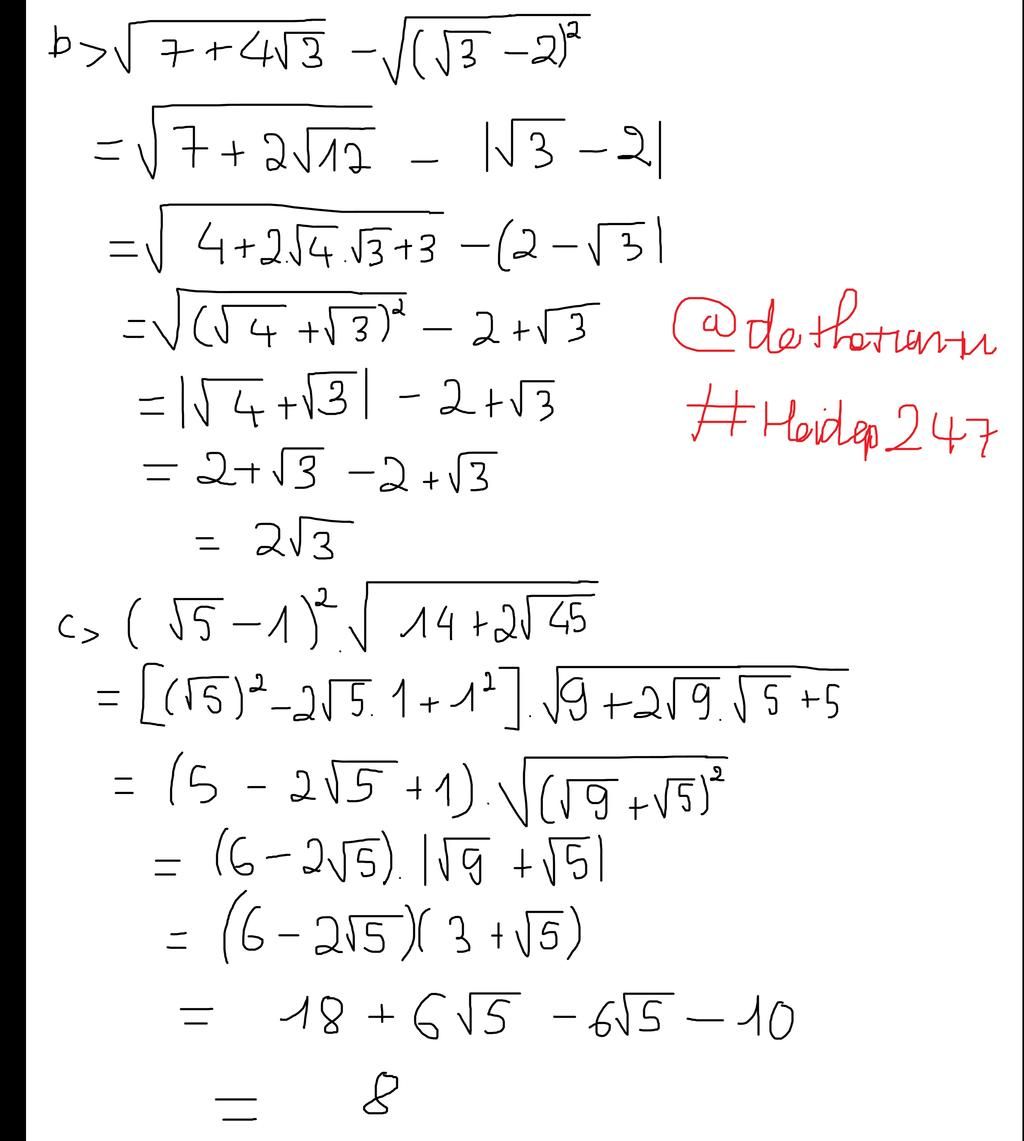 b> √(7+4√3) - √((√3 - 2)²)
= √(7+2√12) - |√3 - 2|
= √(4+2.√4.√3+3) - (2 - √3|
= √((√4 + √3)²) - 2 + √3
= |√4 + √3| - 2 + √3
= 2+√3 - 2 + √3
= 2√3
#Heidep247
c> (√5 - 1)².√(14+2√45)
= [(√5)² - 2√5.1 + 1²].√(9+2√9.√5+5)
= (5 - 2√5 + 1).√((√9 + √5)²)
= (6 - 2√5).|√9 + √5|
= (6 - 2√5)(3 + √5)
= 18 + 6√5 - 6√5 - 10
= 8